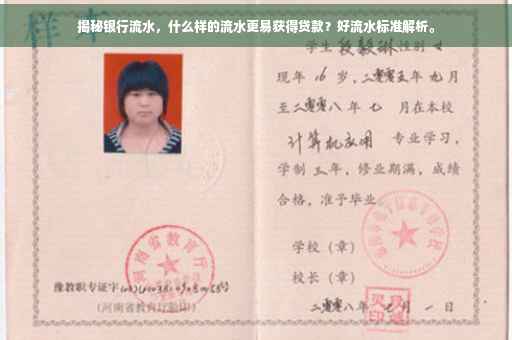 揭秘银行流水，什么样的流水更易获得贷款？好流水标准解析。
样本
学生 段毅琳 性别 女
现年 16 岁，二零零五年 九月
至二零零八年 七 月在本校
计算机应用 专业学习，
学制 三年，修业期满，成绩
合格，准予毕业
学校（章）
校长（章）
二零零八年 七 月 一 日
河南省教育厅
豫教职专证字
（河南省教育厅验印）